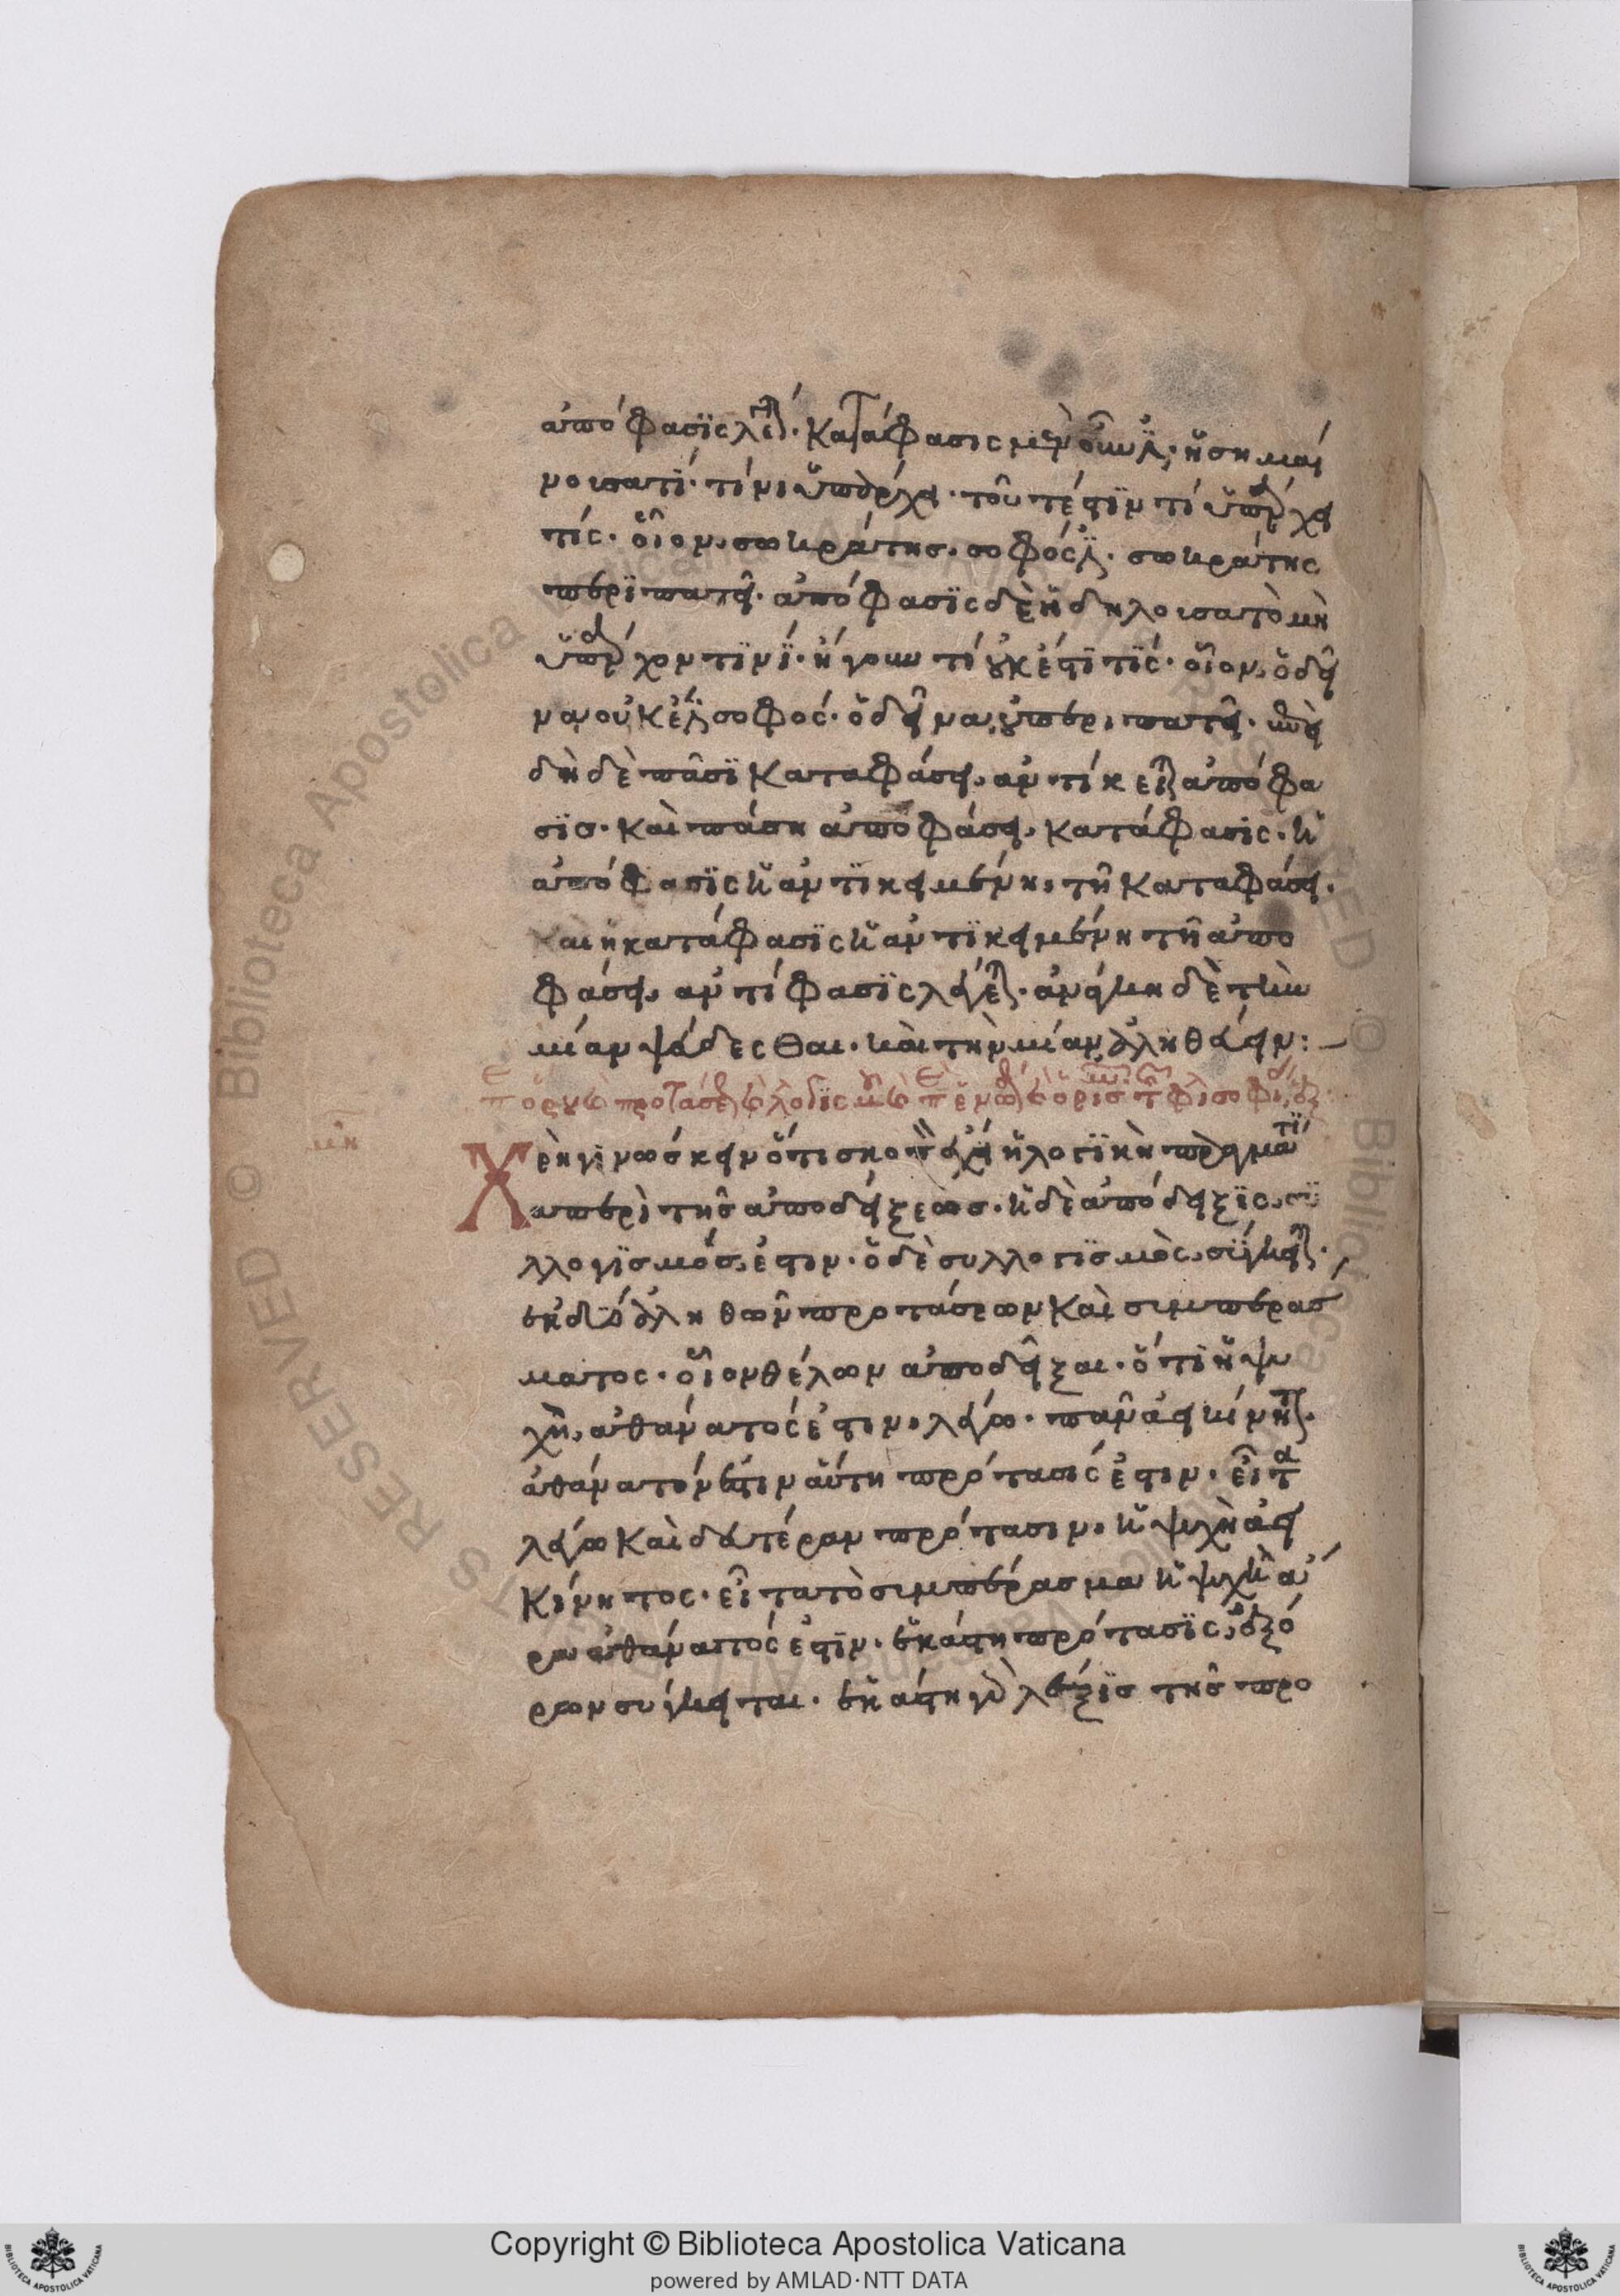 ἀπόφασϊς λέγεται· Κατάφασις μὲν οὖν ἐστιν· ἡ σημαί
νουσα τί· τίνι ὑπάρχει· τουτέστϊν τί ὑπάρχει
τίς· οἷον, σωκράτης, σοφός ἐστι· σωκράτης
περϊπατεῖ· ἀπόφασϊς δὲ ἡ δηλοῦσα τὸ μὴ
ὑπάρχον τϊνϊ· ἤγουν τί οὐκ ἔστϊ τϊς· οἷον, ὁ δεῖ
να οὐκ ἔστι σοφός· ὁ δεῖνα οὐ περιπατεῖ· ἐπει
δὴ δὲ πᾶσϊ Καταφάσει, ἀντίκειται ἀπόφα
σϊσ· καὶ πάση ἀποφάσει, κατάφασϊς· ἡ
ἀπόφασϊς ἡ ἀντϊκειμένη, τῆ καταφάσει·
καὶ ἡ κατάφασϊς ἡ ἀντϊκειμένη τῆ ἀπο
φάσει, ἀντίφασϊς λέγεται· ἀνάγκη δὲ τὴν
μίαν ψεύδεσθαι· καὶ τὴν μίαν ἀληθεύειν:
Χρὴ γϊνώσκειν ὅτι σκοπὸν ἔχει ἡ λογϊκὴ πραγματϊ
α περὶ τῆς ἀποδείξεως· ἡ δὲ ἀπόδειξϊς, συ
λλογϊσμός, ἐστιν· ὁ δὲ συλλογϊσμὸς, σύγκειται·
ἐκ δύο ἀληθῶν προτάσεων Καὶ συμπεράσ
ματος· οἷον θέλων ἀποδεῖξαι· ὅτι ἡ ψυ
χὴ, ἀθάνατός ἐστιν, λέγω· πᾶν ἀεικίνητον·
ἀθάνατόν ἐστιν αὕτη πρότασίς ἐστιν· εἶτα
λέγω Καὶ δευτέραν πρότασιν, ἡ ψυχὴ ἀεὶ
Κίνητος· εἶτα τὸ συμπέρασμα ἡ ψυχὴ ἄ
ρα ἀθάνατός ἐστϊν· ἑκάστη πρότασϊς, ἐξ ὅ
ρων σύγκειται· ἑκάστη γὰρ λέξϊσ τῆς προ